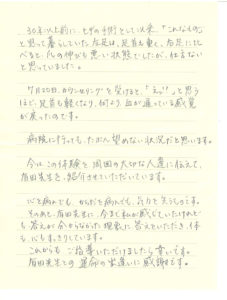 30年以上前に、ヒザの手術をして以来、「こんなもの」
と思って暮らしていた左足は、足首も重く、右足に比
べると、ヒザの伸びも悪い状態でしたが、仕方ない
と思っていました。
7月20日、カウンセリングを受けると、「えっ!!」と思う
ほど、足首も軽くなり、何より、血が通っている感覚
が戻ったのです。
病院に行っても、たぶん望めない状況だと思います。
今はこの体験を周囲の大切な人達に伝えて、
角田先生を、紹介させていただいています。
心と病んでも、からだを病んでも、気分を失うものです。
そのあと、角田先生に、今まで私が感じていたけれど
も答えが分からなかった現象に答えていただき、体
も心もすっきりしています。
これからも ご指導いただけましたら幸いです。
角田先生との運命の出逢いに感謝です。